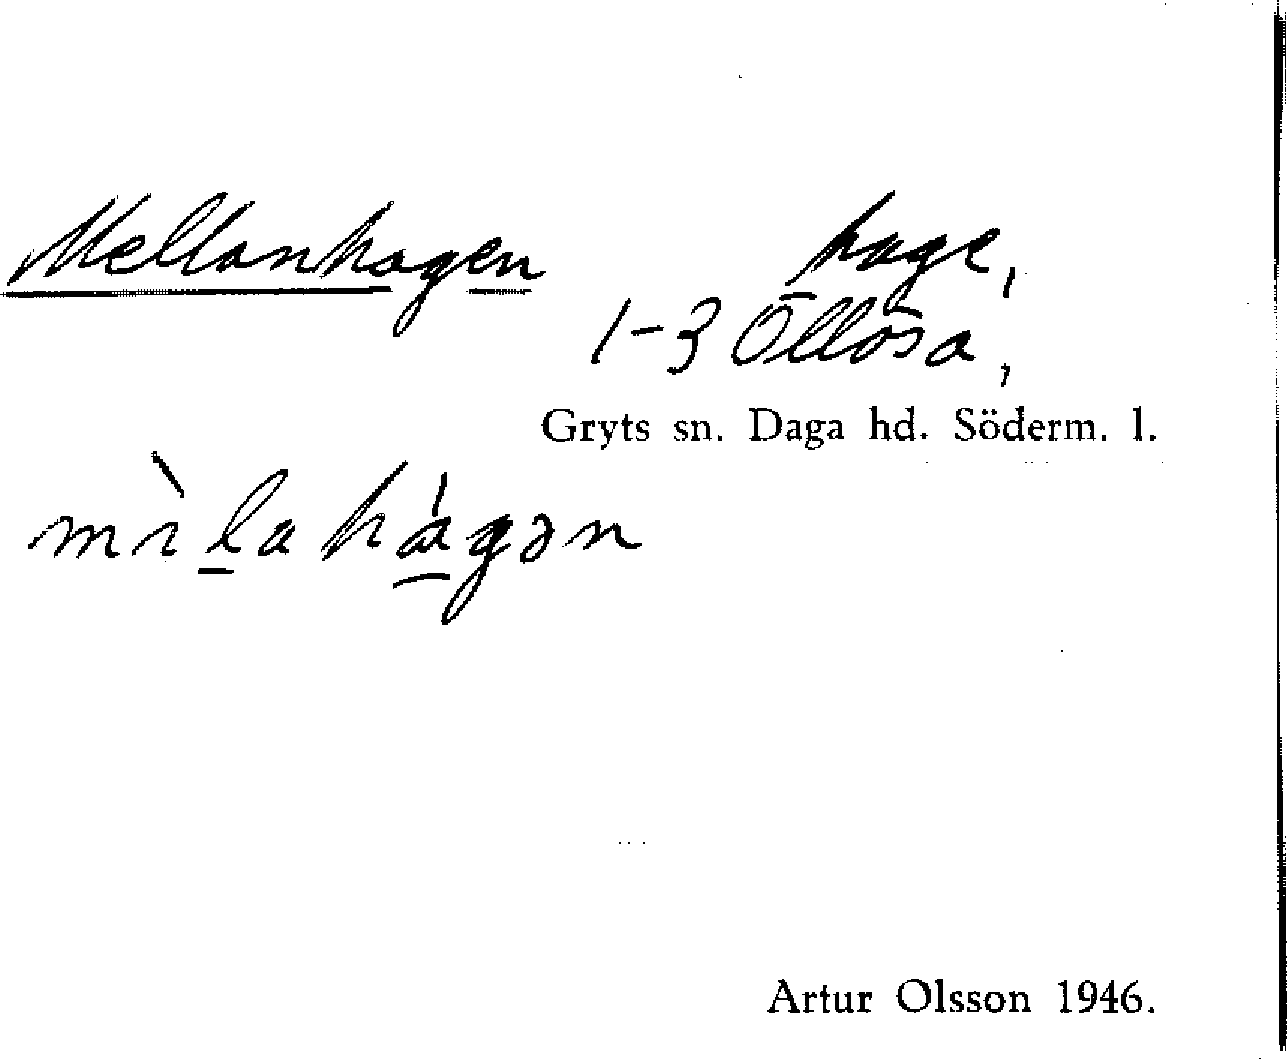 Mellanhagen hage,
1-3 Öllösa,
Gryts sn. Daga hd. Söderm. l.
Artur Olsson 1946.